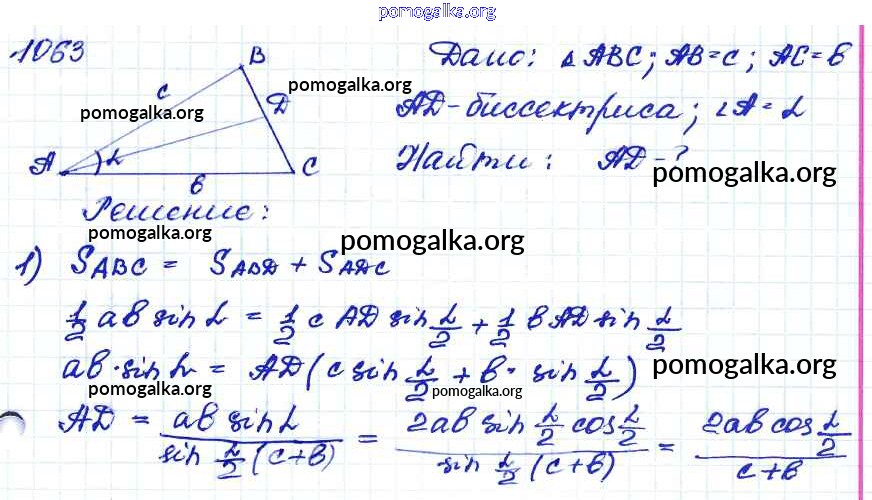 pomogalka.org
1063
B
c
D
A
α
C
b
Дано: △ABC; AB=c; AC=b
AD-биссектриса; ∠A=α
Найти: AD-?
pomogalka.org
pomogalka.org
pomogalka.org
Решение:
pomogalka.org
pomogalka.org
1) S_ABC = S_ABD + S_ADC
1/2 ab sin α = 1/2 c AD sin α/2 + 1/2 b AD sin α/2
ab·sin α = AD (c sin α/2 + b· sin α/2)
pomogalka.org
pomogalka.org
pomogalka.org
AD = ab sin α / sin α/2 (c+b) = 2ab sin α/2 cos α/2 / sin α/2 (c+b) = 2ab cos α/2 / c+b